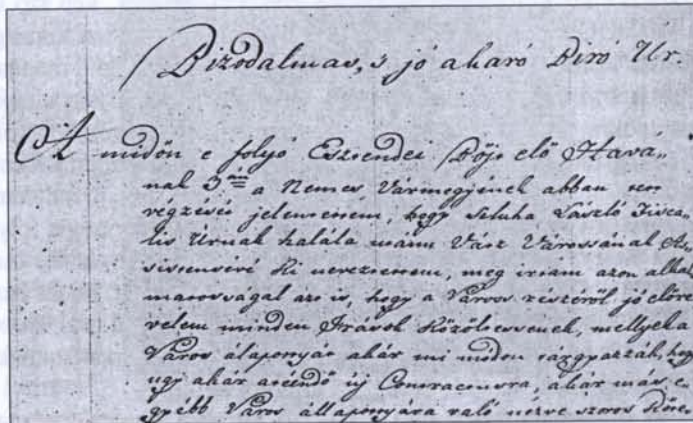 Bizodalmas, s jó akaró Biró Ur.
A midőn e folyó Esztendei Böjt elő Havá„
nak 3án a Nemes Vármegyének abban
végzését jelentettem, hogy Szluha László Fisca„
lis Úrnak halála után Vátz Várossának As
sistensévé Ki neveztettem, meg irtam azon alkal
matossággal azt is, hogy a Város részéről jó előre
velem minden Irások Közöltessenek, mellyek a
Város álapottyát akár mi módon tárgyazzák, hogy
ugy akár aténdő új Contractusra, akár más e
gyébb Város állapottyára való nézve szoros